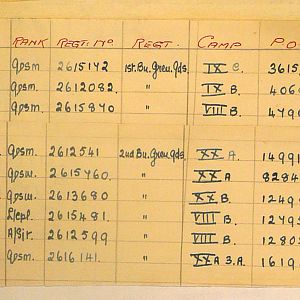 RANK REGT. Nº REGT. CAMP PO
Gdsm 2615172 1st. Bn. Gren. Gds. IX C. 3615
Gdsm. 2612082. " IX B. 406
Gdsm. 2615870 " VIII B. 4790
Gdsm. 2612541 2nd Bn. Gren. Gds. XX A. 14991
Gdsm. 2615760. " XX A 8284
Gdsm. 2613680 " XX B. 1249
L/cpl. 2615481. " VIII B. 1275
2612599 " VIII B. 1280
Gdsm. 2616141. " XXA 3.A. 1619